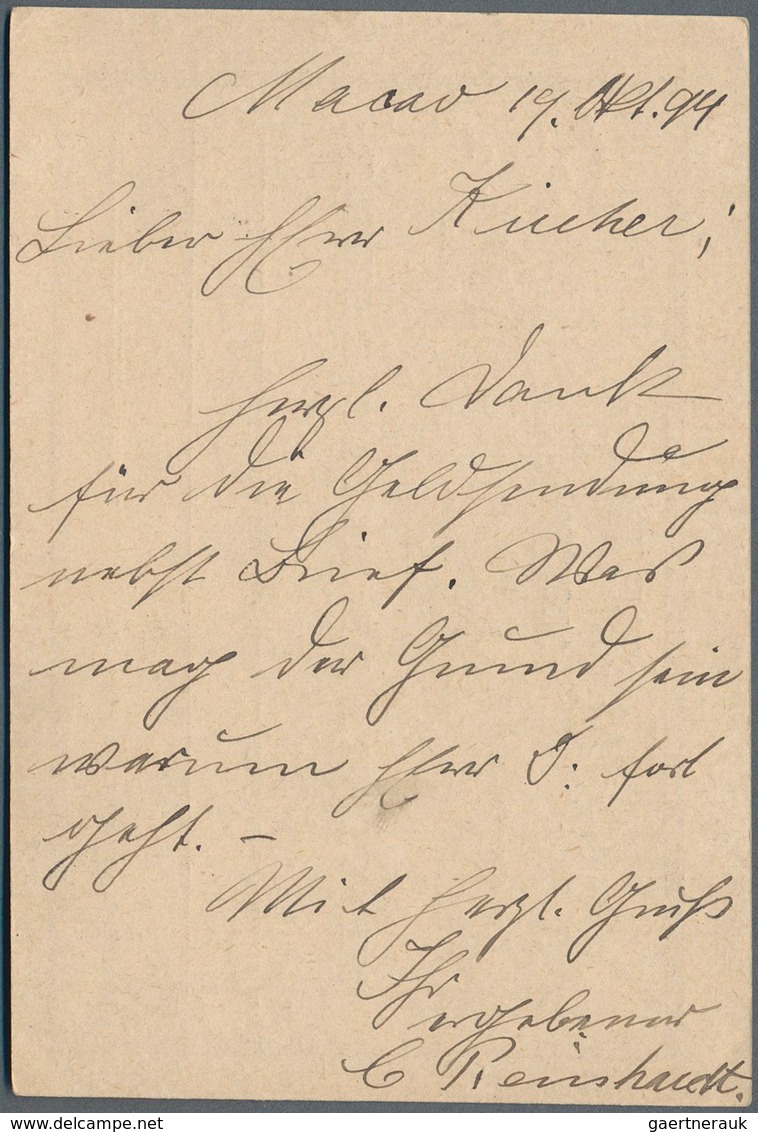 Macao 19. Okt. 94
Lieber Herr Kircher;
Herzl. Dank
für die Geldsendung
nebst Brief. Was
mag der Grund sein
warum Herr D. fort
geht. –
Mit herzl. Gruß
Ihr
ergebener
C Reinhardt.
www.delcampe.net
gaertnerauk